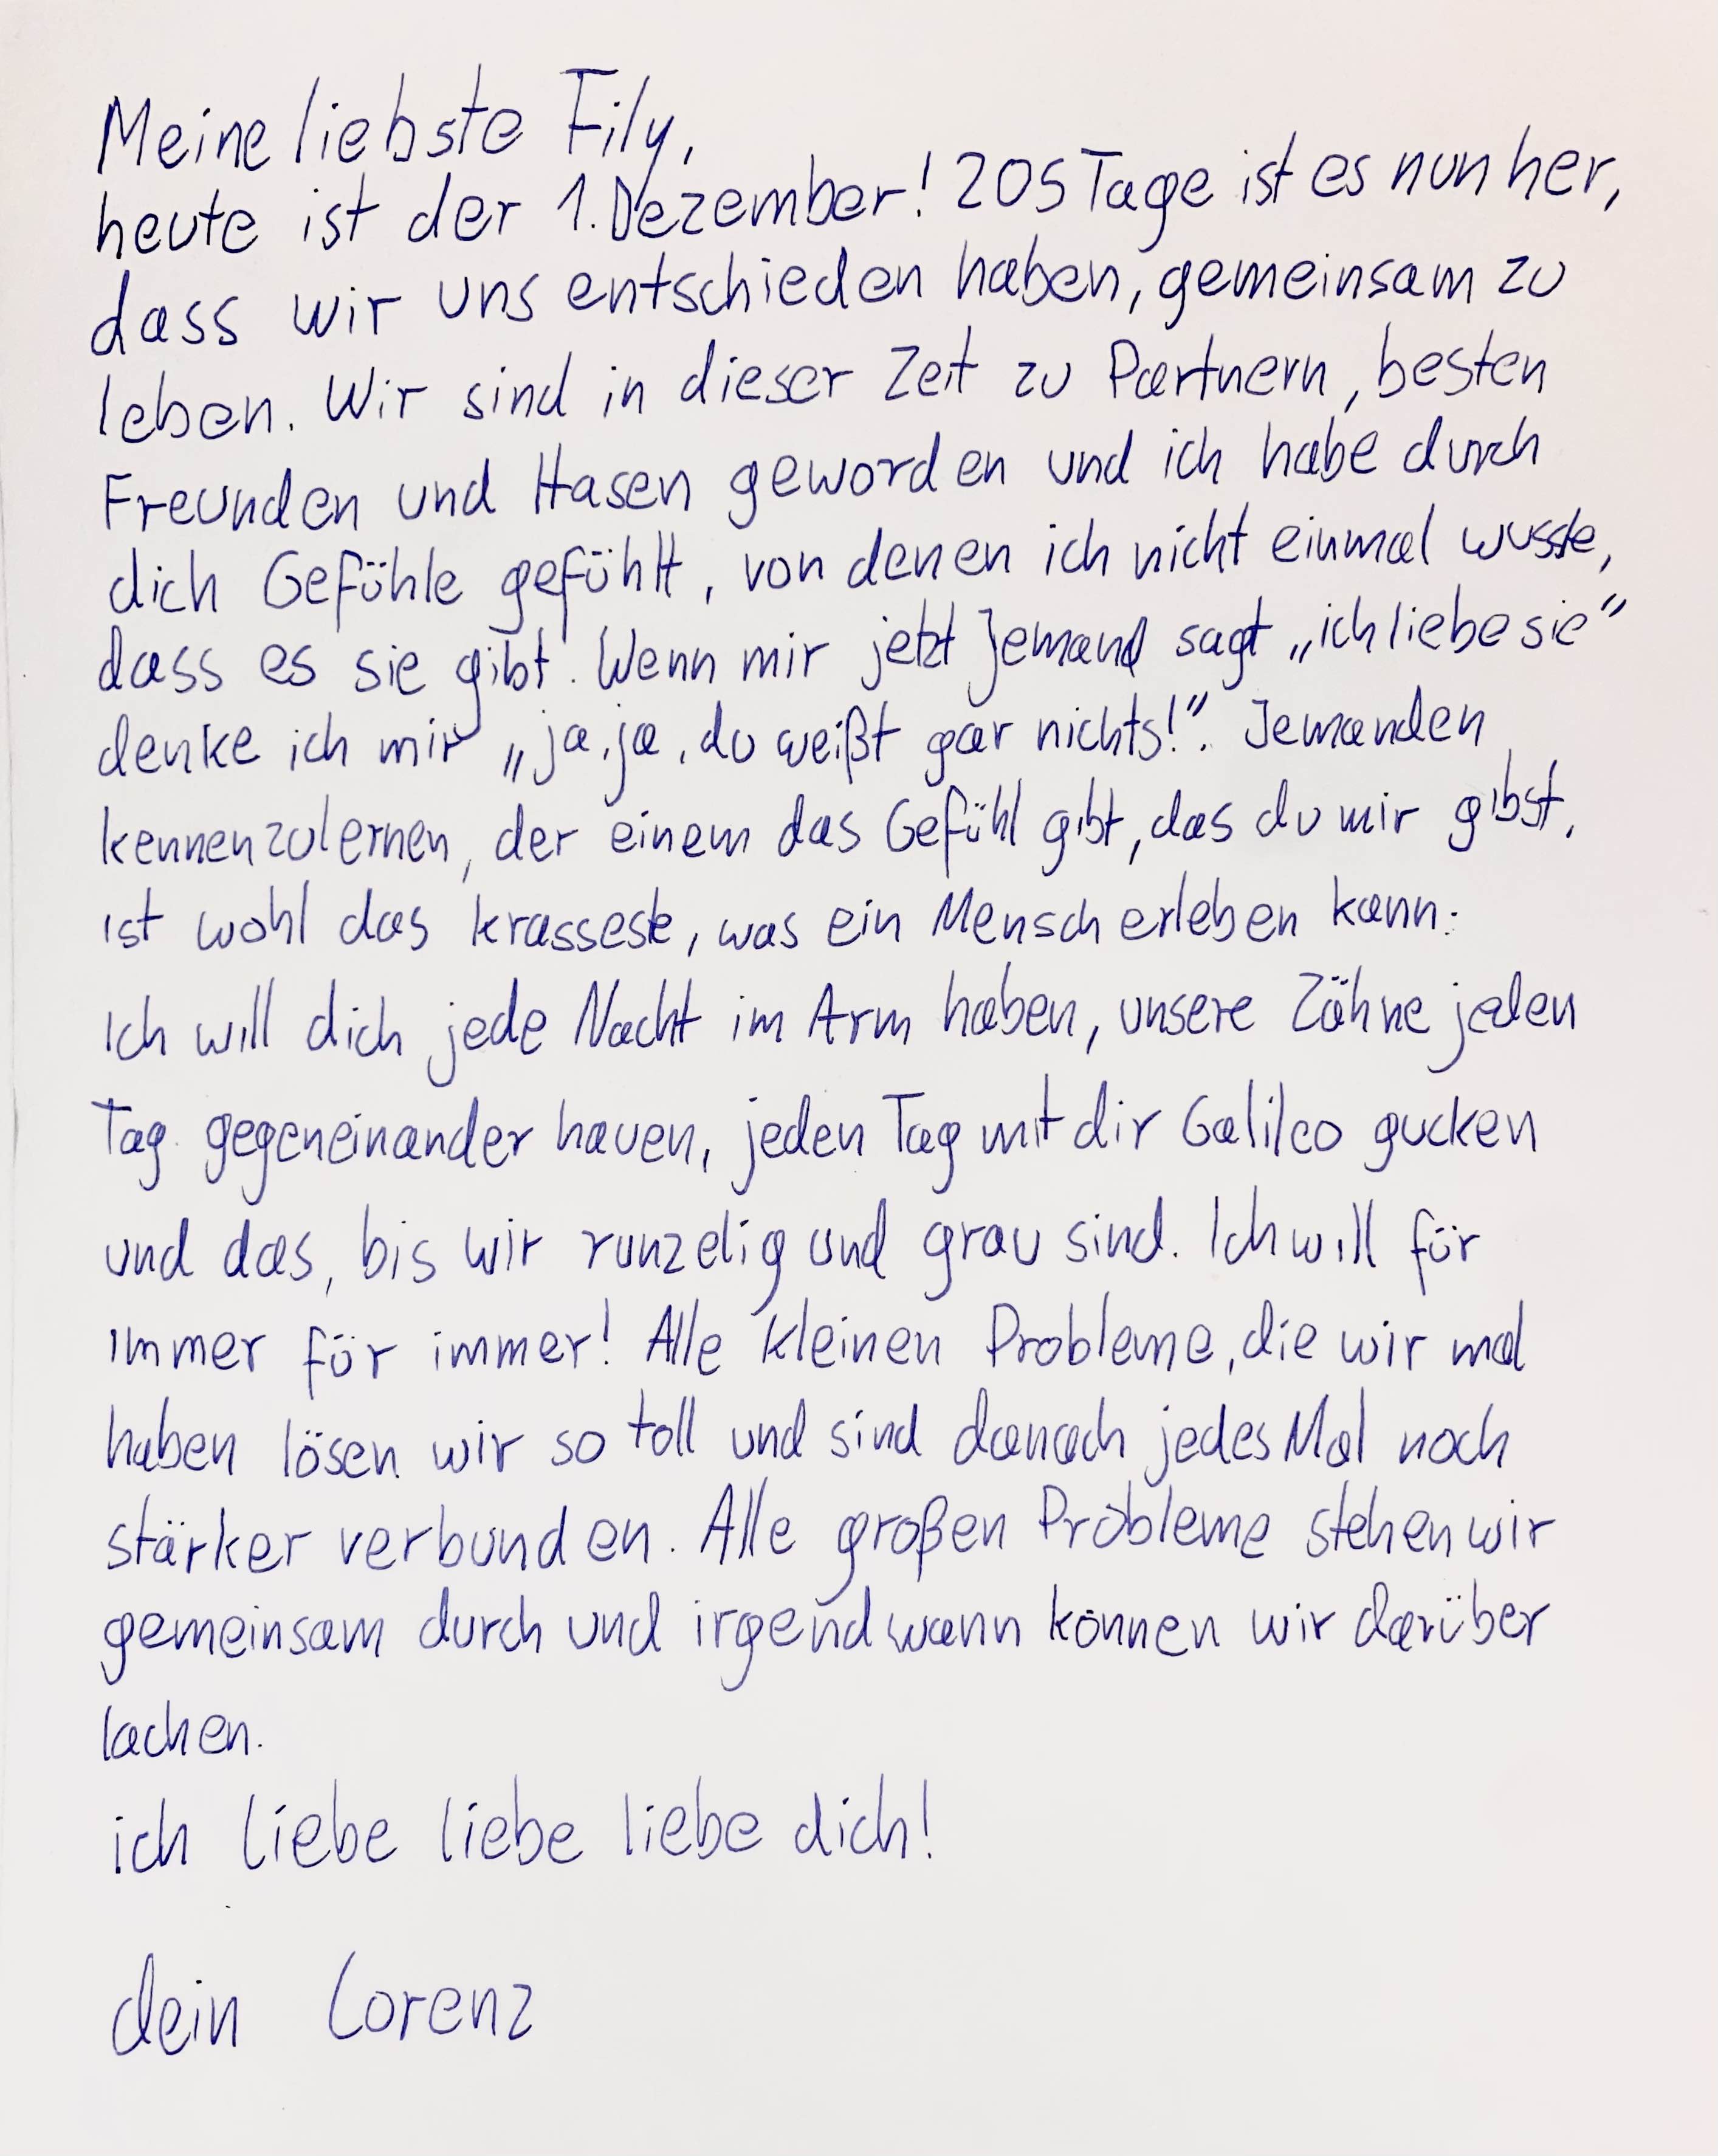 Meine liebste Fily,
heute ist der 1. Dezember! 205 Tage ist es nun her,
dass wir uns entschieden haben, gemeinsam zu
leben. Wir sind in dieser Zeit zu Partnern, besten
Freunden und Hasen geworden und ich habe durch
dich Gefühle gefühlt, von denen ich nicht einmal wusste,
dass es sie gibt. Wenn mir jetzt Jemand sagt „ich liebe sie“
denke ich mir „ja, ja, du weißt gar nichts!“. Jemanden
kennenzulernen, der einem das Gefühl gibt, das du mir gibst,
ist wohl das krasseste, was ein Mensch erleben kann:
Ich will dich jede Nacht im Arm haben, unsere Zähne jeden
Tag gegeneinander hauen, jeden Tag mit dir Galileo gucken
und das, bis wir runzelig und grau sind. Ich will für
immer für immer! Alle kleinen Probleme, die wir mal
haben lösen wir so toll und sind danach jedes Mal noch
stärker verbunden. Alle großen Probleme stehen wir
gemeinsam durch und irgendwann können wir darüber
lachen.
ich liebe liebe liebe dich!
dein Lorenz